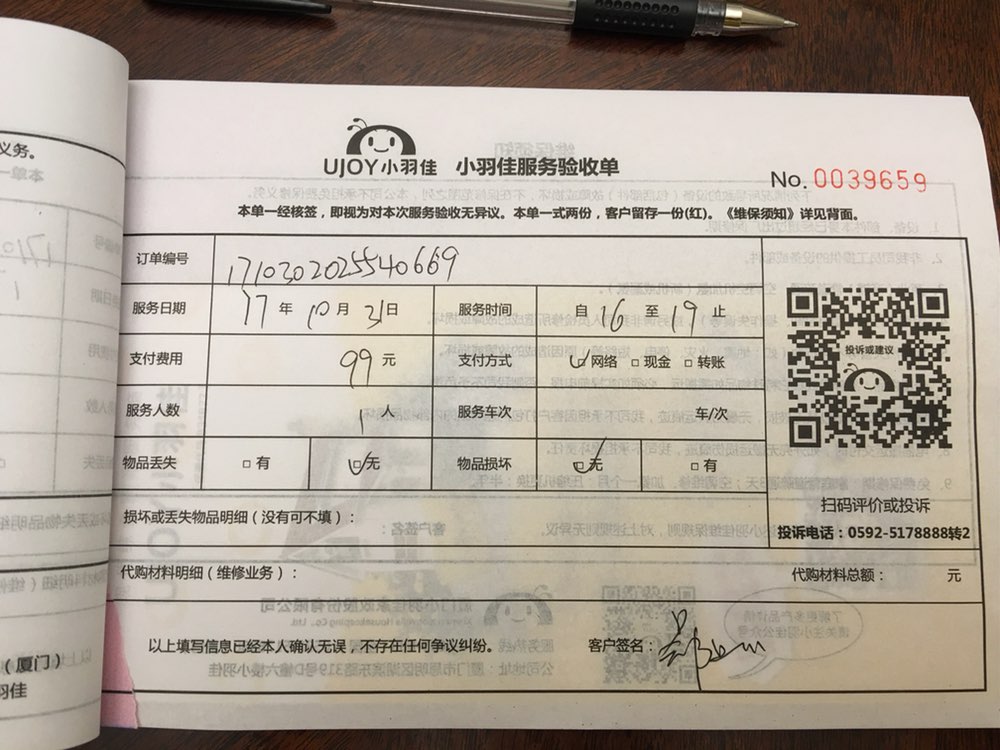 UJOY小羽佳 小羽佳服务验收单
No. 0039659
本单一经核签，即视为对本次服务验收无异议。本单一式两份，客户留存一份(红)。《维保须知》详见背面。
订单编号 171030202554 0669
服务日期 17 年 10 月 31 日 服务时间 自 16 至 19 止
支付费用 99 元 支付方式 网络 现金 转账
服务人数 1 人 服务车次 车/次
物品丢失 有 无 物品损坏 无 有
投诉或建议
扫码评价或投诉
投诉电话：0592-5178888转2
损坏或丢失物品明细（没有可不填）：
代购材料明细（维修业务）： 代购材料总额： 元
以上填写信息已经本人确认无误，不存在任何争议纠纷。 客户签名：
义务。
（厦门）
羽佳